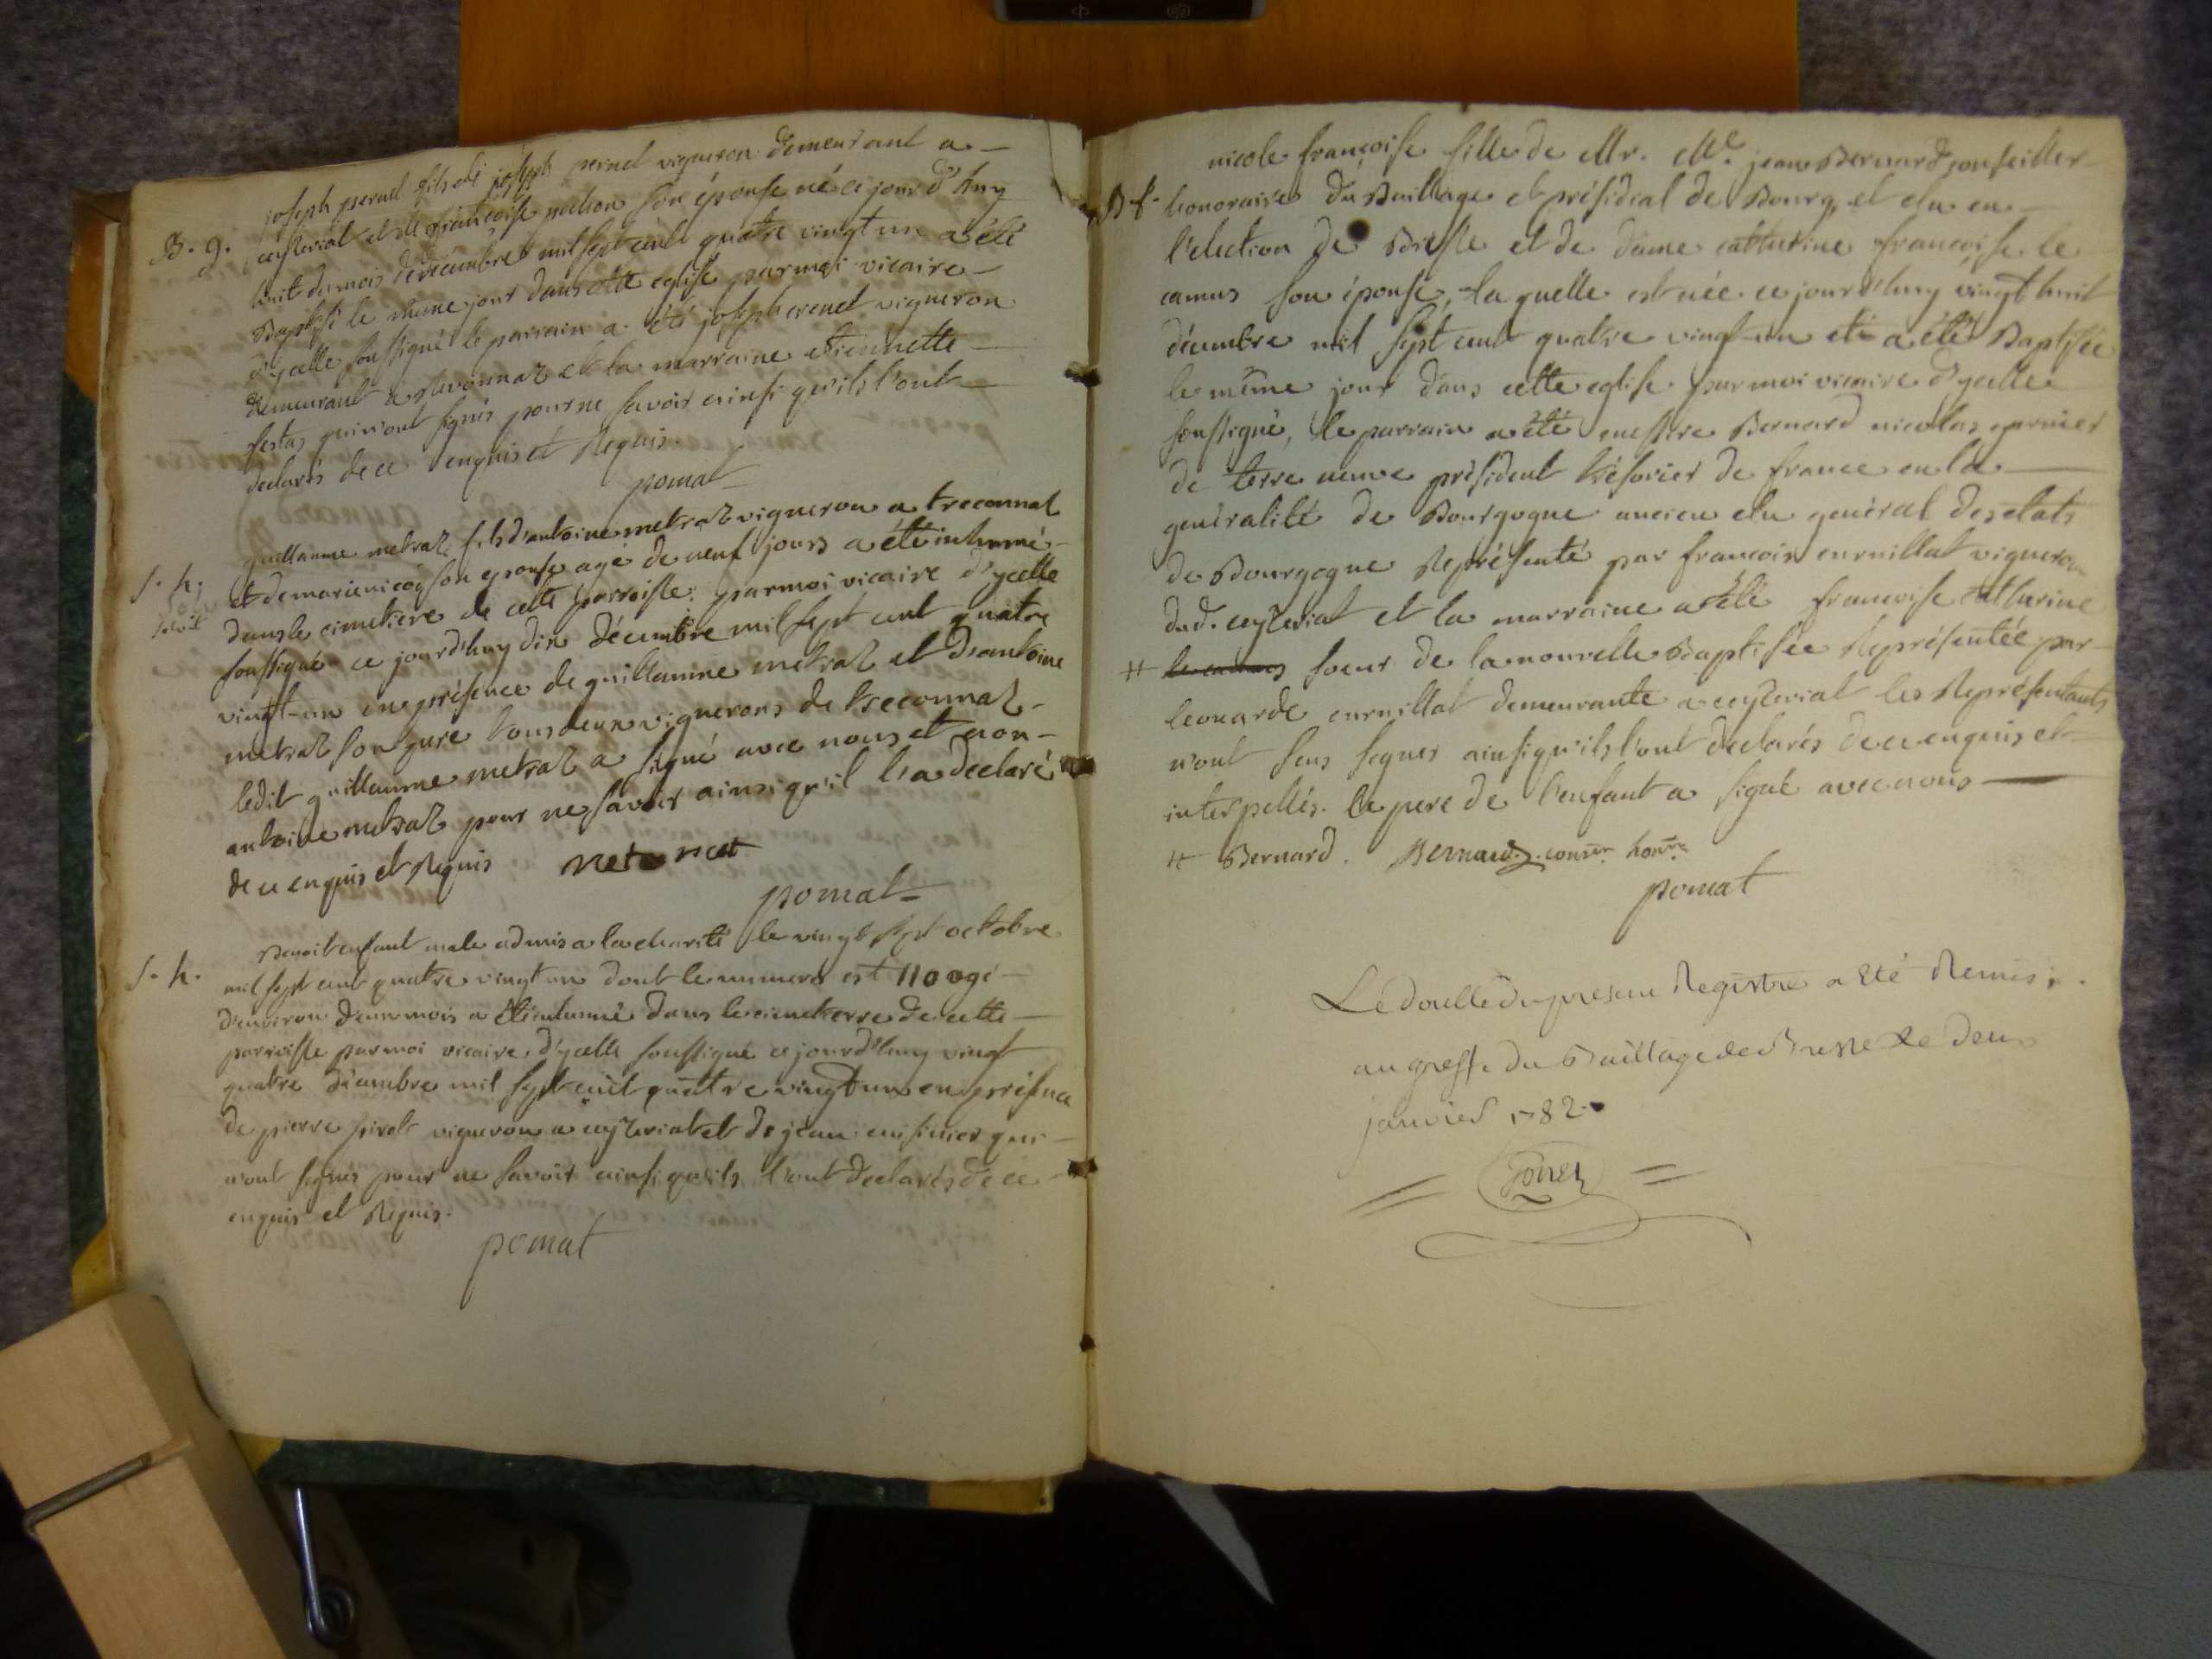 joseph pernel fils de joseph pernel vigneron demeurant a
B. g. ceyseriat et de françoise son épouse né ce jourd'huy
huit du mois de decembre mil sept cent quatre vingt un a été
Baptisé le même jour dans cette eglise par moi vicaire
d'ycelle soussigné le parrain a été joseph vigneron
demeurant a et la marraine etiennette
qui n'ont signés pour ne savoir ainsi qu'ils l'ont
declarés de ce enquis et Requis.
pomat
guillaume metraz fils d'antoine metraz vigneron a treconnat
s. h. et de marie nicoz son epouse agé de neuf jours a été inhumé
dans le cimetiere de cette parroisse par moi vicaire d'ycelle
soussigné ce jourd'huy dix décembre mil sept cent quatre
vingt-un en présence de guillaume metraz et d'antoine
metraz son pere tous deux vignerons de treconnaz
ledit guillaume metraz a signé avec nous et non
antoine metraz pour ne savoir ainsi qu'il l'a declaré
de ce enquis et Requis
pomat
Benoit enfant male admis a la charité le vingt sept octobre
s. h. mil sept cent quatre vingt un dont le numero est 110 agé
d'environ deux mois a été inhumé dans le cimetierre de cette
parroisse par moi vicaire d'ycelle soussigné ce jourd'huy vingt
quatre décembre mil sept cent quatre vingt un en présence
de pierre pirat vigneron a ceyzeriat et de jean cuisinier qui
n'ont signés pour ne savoir ainsi qu'ils l'ont declarés de ce
enquis et Requis.
pomat
nicole françoise fille de Mr. Me. jean Bernard conseiller
B f. honoraire du Baillage et présidial de Bourg, et elu en
l'election de Bresse et de dame catherine françoise le
camus son épouse, laquelle est née ce jourd'huy vingt huit
décembre mil sept cent quatre vingt-un et a été Baptisée
le même jour dans cette eglise par moi vicaire d'ycelle
soussigné, le parrain a été messire Bernard nicolas garnier
de terre neuve président trésorier de france en la
généralité de Bourgogne ancien elu general des etats
de Bourgogne Représenté par francois curnillat vigneron
dud. ceyzeriat et la marraine a été francoise catherine
# le camus soeur de la nouvelle Baptisée Représentée par
leonarde curnillat demeurante a ceyzeriat les Représentants
n'ont seus signer ainsi qu'ils l'ont declarés de ce enquis et
interpellés. le pere de l'enfant a signé avec nous
# Bernard. Bernard. conser. honre.
pomat
Le double du present Registre a Eté Remis
au greffe du Baillage de Bresse Le deux
janvier 1782.